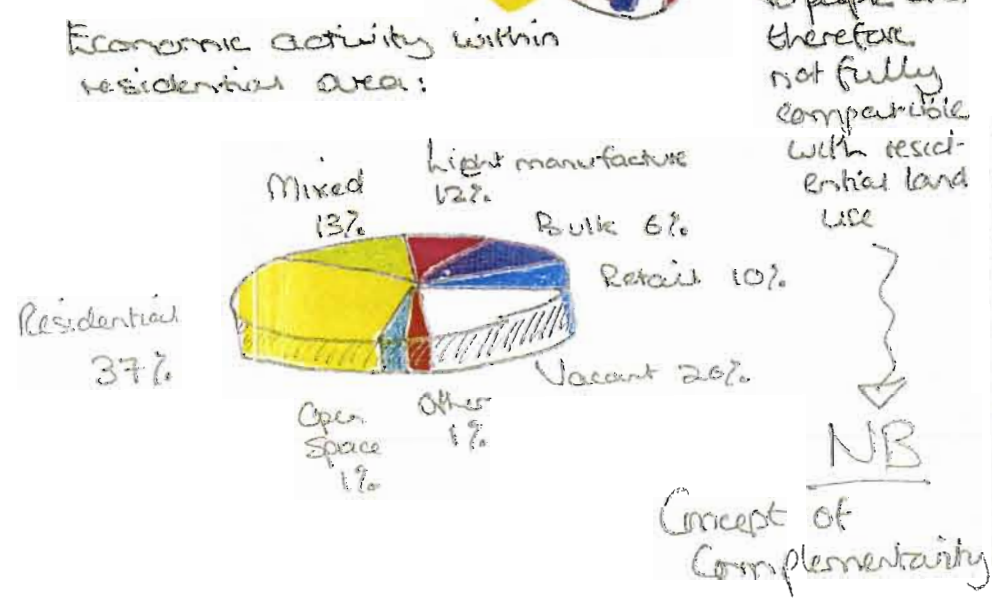 Economic activity within
residential area:
therefore
not fully
compatible
with resid-
ential land
use
Mixed
13%
Light manufacture
12%
Bulk 6%
Retail 10%
Residential
37%
Vacant 20%
Open
Space
1%
Other
1%
NB
Concept of
Complementarity